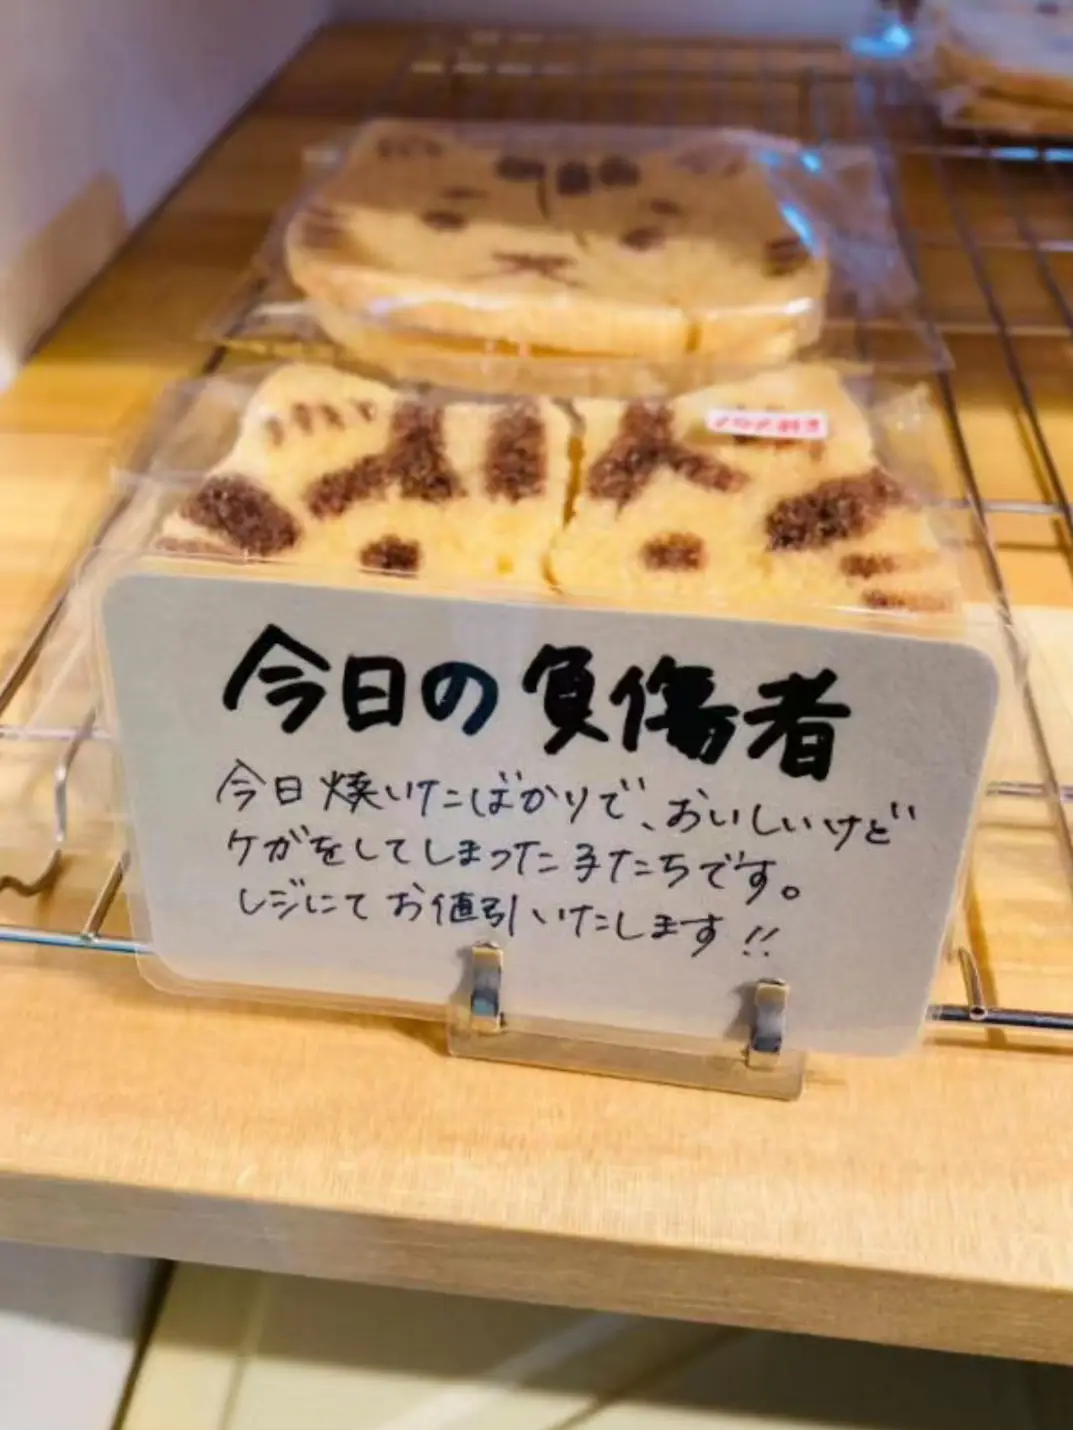 今日の負傷者
今日焼いたばかりで、おいしいけど
ケガをしてしまった子たちです。
レジにてお値引いたします!!